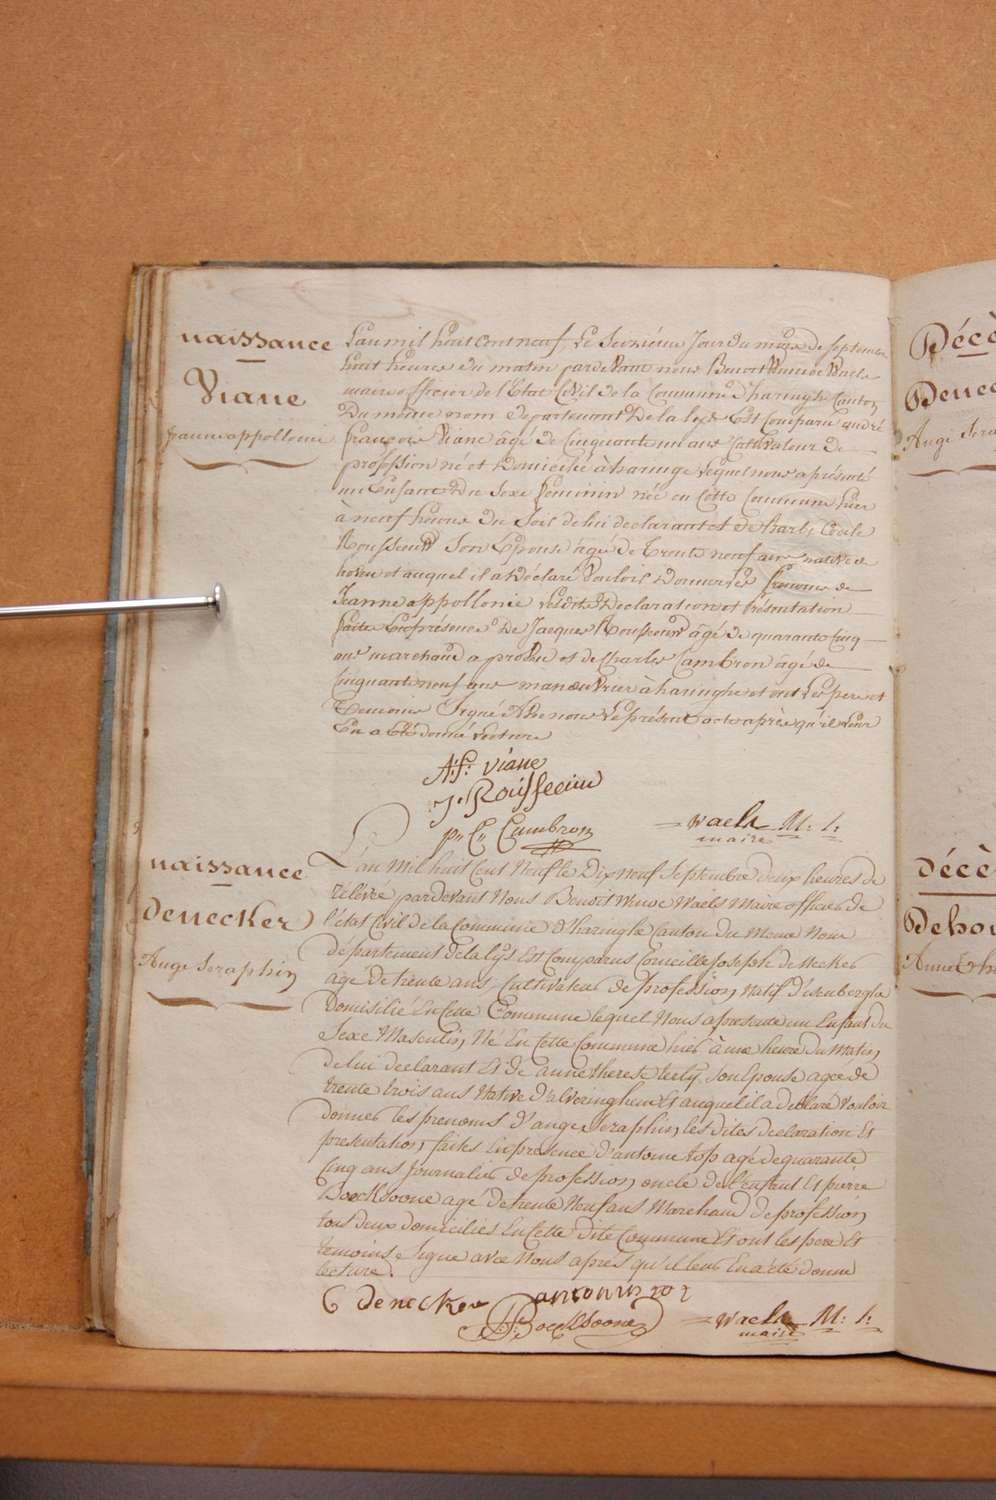 naissance
Viane
jeanne appollonie
L'an mil huit cent neuf Le Seizième Jour du mois de septembre
huit heures du matin pardevant nous Benoit Winoc Waels
maire officier de l'Etat Civil de la Commune d'haringhe Canton
Du même nom Departement De la Lys Est Comparu andré
françois Viane âgé de Cinquante un ans Cultivateur de
profession né et Domicilié à haringe Lequel nous a présenté
un Enfant Du Sexe feminin née en Cette Commune hier
à neuf heures du Soir de lui declarant et de Barbe Cecile
Rousseeuw Son Epouse âgée de Trente neuf ans native de
et auquel il a Déclaré Vouloir Donner Les prenoms de
Jeanne appollonie Lesdites Declaration et Présentation
faites En présence De Jacques Rousseeuw âgé de quarante Cinq
ans marchand et de Charles Cambron âgé de
Cinquante neuf ans manœuvrier à haringhe et ont Les pere et
Temoins Signé Avec nous Le présent acte après qu'il Leur
En a Eté donné Lecture
A: f: Viane
J: Rousseeuw
p: C: Cambron
Waels M: f:
maire
naissance
Denecker
Ange Seraphin
L'an Mil huit Cent Neuf le Dix neuf Septembre deux heures de
relevée pardevant Nous Benoit Winoc Waels Maire officier de
l'état Civil de la Commune d'haringhe Canton du Meme Nom
département de la lys Est Comparus Corneille Joseph denecker
age De trente ans, Cultivateur de profession, Natif d'isenberghe
Domisilié En Cette Commune lequel Nous a presente un Enfant du
Sexe Masculin, Né En Cette Commune hier à une heure du Matin,
de lui declarant Et de anne therese terty, Son Epouse agee de
trente trois ans Native d'alveringhem Et auquel il a declaré Vouloir
donner les prenoms d'ange Seraphin, les dites declaration Et
presentation, faites En presence d'antoine top agé de quarante
Cinq ans Journalier de profession, oncle de l'enfant Et pierre
Boecksoone agé de trente Neuf ans Marchand de profession,
tous deux domiciliés En Cette dite Commune Et ont les pere Et
temoins Signe avec Nous apres qu'il leur En a été donne
lecture.
C denecker
antonius top
P: Boecksoone
Waels M: f:
maire
Décè
Denec
Ange Sera
décè
Dehou
Anne